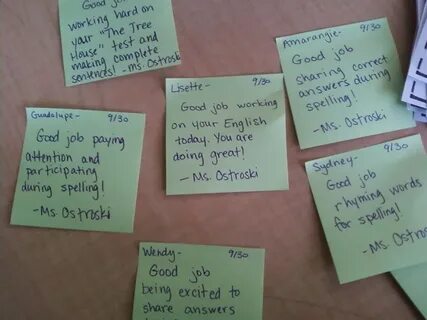 Good job
working hard on
your "The Tree
House" test and
making complete
sentences! -Ms. Ostroski
Amarangie- 9/30
Good job
sharing correct
answers during
spelling!
-Ms. Ostroski
Lisette- 9/30
Good job working
on your English
today. You are
doing great!
-Ms. Ostroski
Guadalupe- 9/30
Good job paying
attention and
participating
during spelling!
-Ms. Ostroski
Sydney- 9/30
Good job
rhyming words
for spelling!
-Ms. Ostros
Wendy- 9/30
Good job
being excited to
share answers